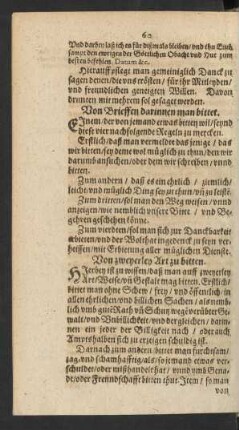 60
Vnd darbey laß ich es für dißmal bleiben/ vnd thu Euch
sampt den ewrigen der Göttlichen Obacht vnd Hut zum
besten befehlen. Datum &c.
Hierauff pflegt man gemeiniglich Danck zu
sagen denen/die vns trösten/ für ihr Mitleyden/
vnd freundlichen geneigten Willen. Davon
drunten mit mehrem sol gesaget werden.
Von Brieffen darinnen man bittet.
Einem/ der von jemand etwas bitten wil/ seynd
diese vier nachfolgende Regeln zu mercken.
Erstlich/ daß man vermeldet das jenige/ das
wir bitten/ sey deme wol müglich zu thun/ den wir
darumb ansuchen/ oder dem wir schreiben/ vnnd
bitten.
Zum andern/ daß es ein ehrlich/ ziemlich/
leicht/ vnd müglich Ding sey zu thun/ vñ zu leistē.
Zum dritten/ sol man den Weg weisen/ vnnd
anzeigen/ wie nemblich vnsere Bitte/ vnd Be-
gehren geschehen könne.
Zum vierdten/ sol man sich zur Danckbarkeit
erbieten/ vnd der Wolthat ingedenck zu seyn ver-
heissen/ mit Erbietung aller müglichen Dienste.
Von zweyerley Art zu bitten.
Hierbey ist zu wissen/ daß man auff zweyerley
Art/ Weise/ vñ Gestalt mag bitten. Erstlich/
bittet man ohne Schew/ frey/ vnd öffentlich/ in
allen ehrlichen/ vnd billichen Sachen/ als nemb-
lich vmb gutē Rath vñ Schutz wegē verübter Ge-
walt/ vnd Vnbillichkeit/ vnd dergleichen/ darin-
nen ein jeder der Billigkeit nach/ oder auch
Ampts halber sich zu erzeigen schuldig ist.
Darnach zum andern bittet man furchtsam/
zag/ vnd schamhafftig/ als/ so jemand etwas ver-
schuldet/ oder mißhandelt hat/ vnnd vmb Gena-
de/ oder Freundschafft bitten thut. Item/ so man
von